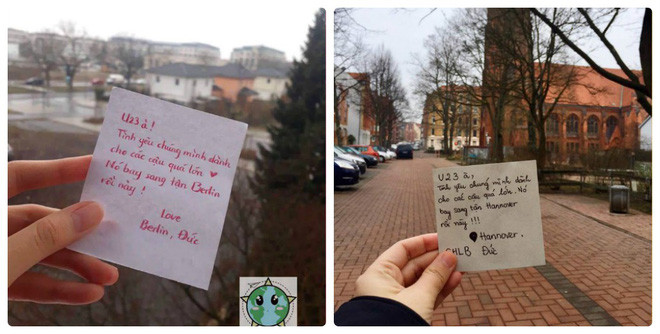 U23 à!
Tình yêu chúng mình dành
cho các cậu quá lớn ♥
Nó bay sang tận Berlin
rồi này!
Love
Berlin, Đức
U23 à,
Tình yêu chúng mình dành
cho các cậu quá lớn. Nó
bay sang tận Hannover
rồi này!!!
Hannover.
CHLB Đức